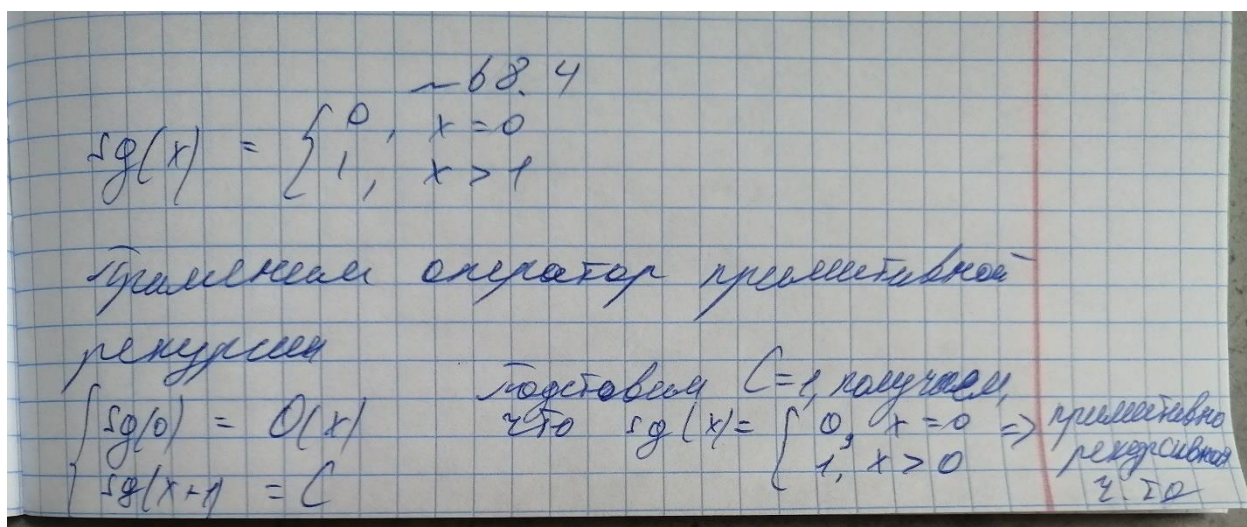 ~68.4
sg(x) = { 0, x = 0
1, x > 1
Применим оператор примитивной
рекурсии
{ sg(0) = O(x)
sg(x+1) = C
Подставим C=1, получаем,
что sg(x) = { 0, x = 0 =>
1, x > 0
примитивно
рекурсивная
ч.то